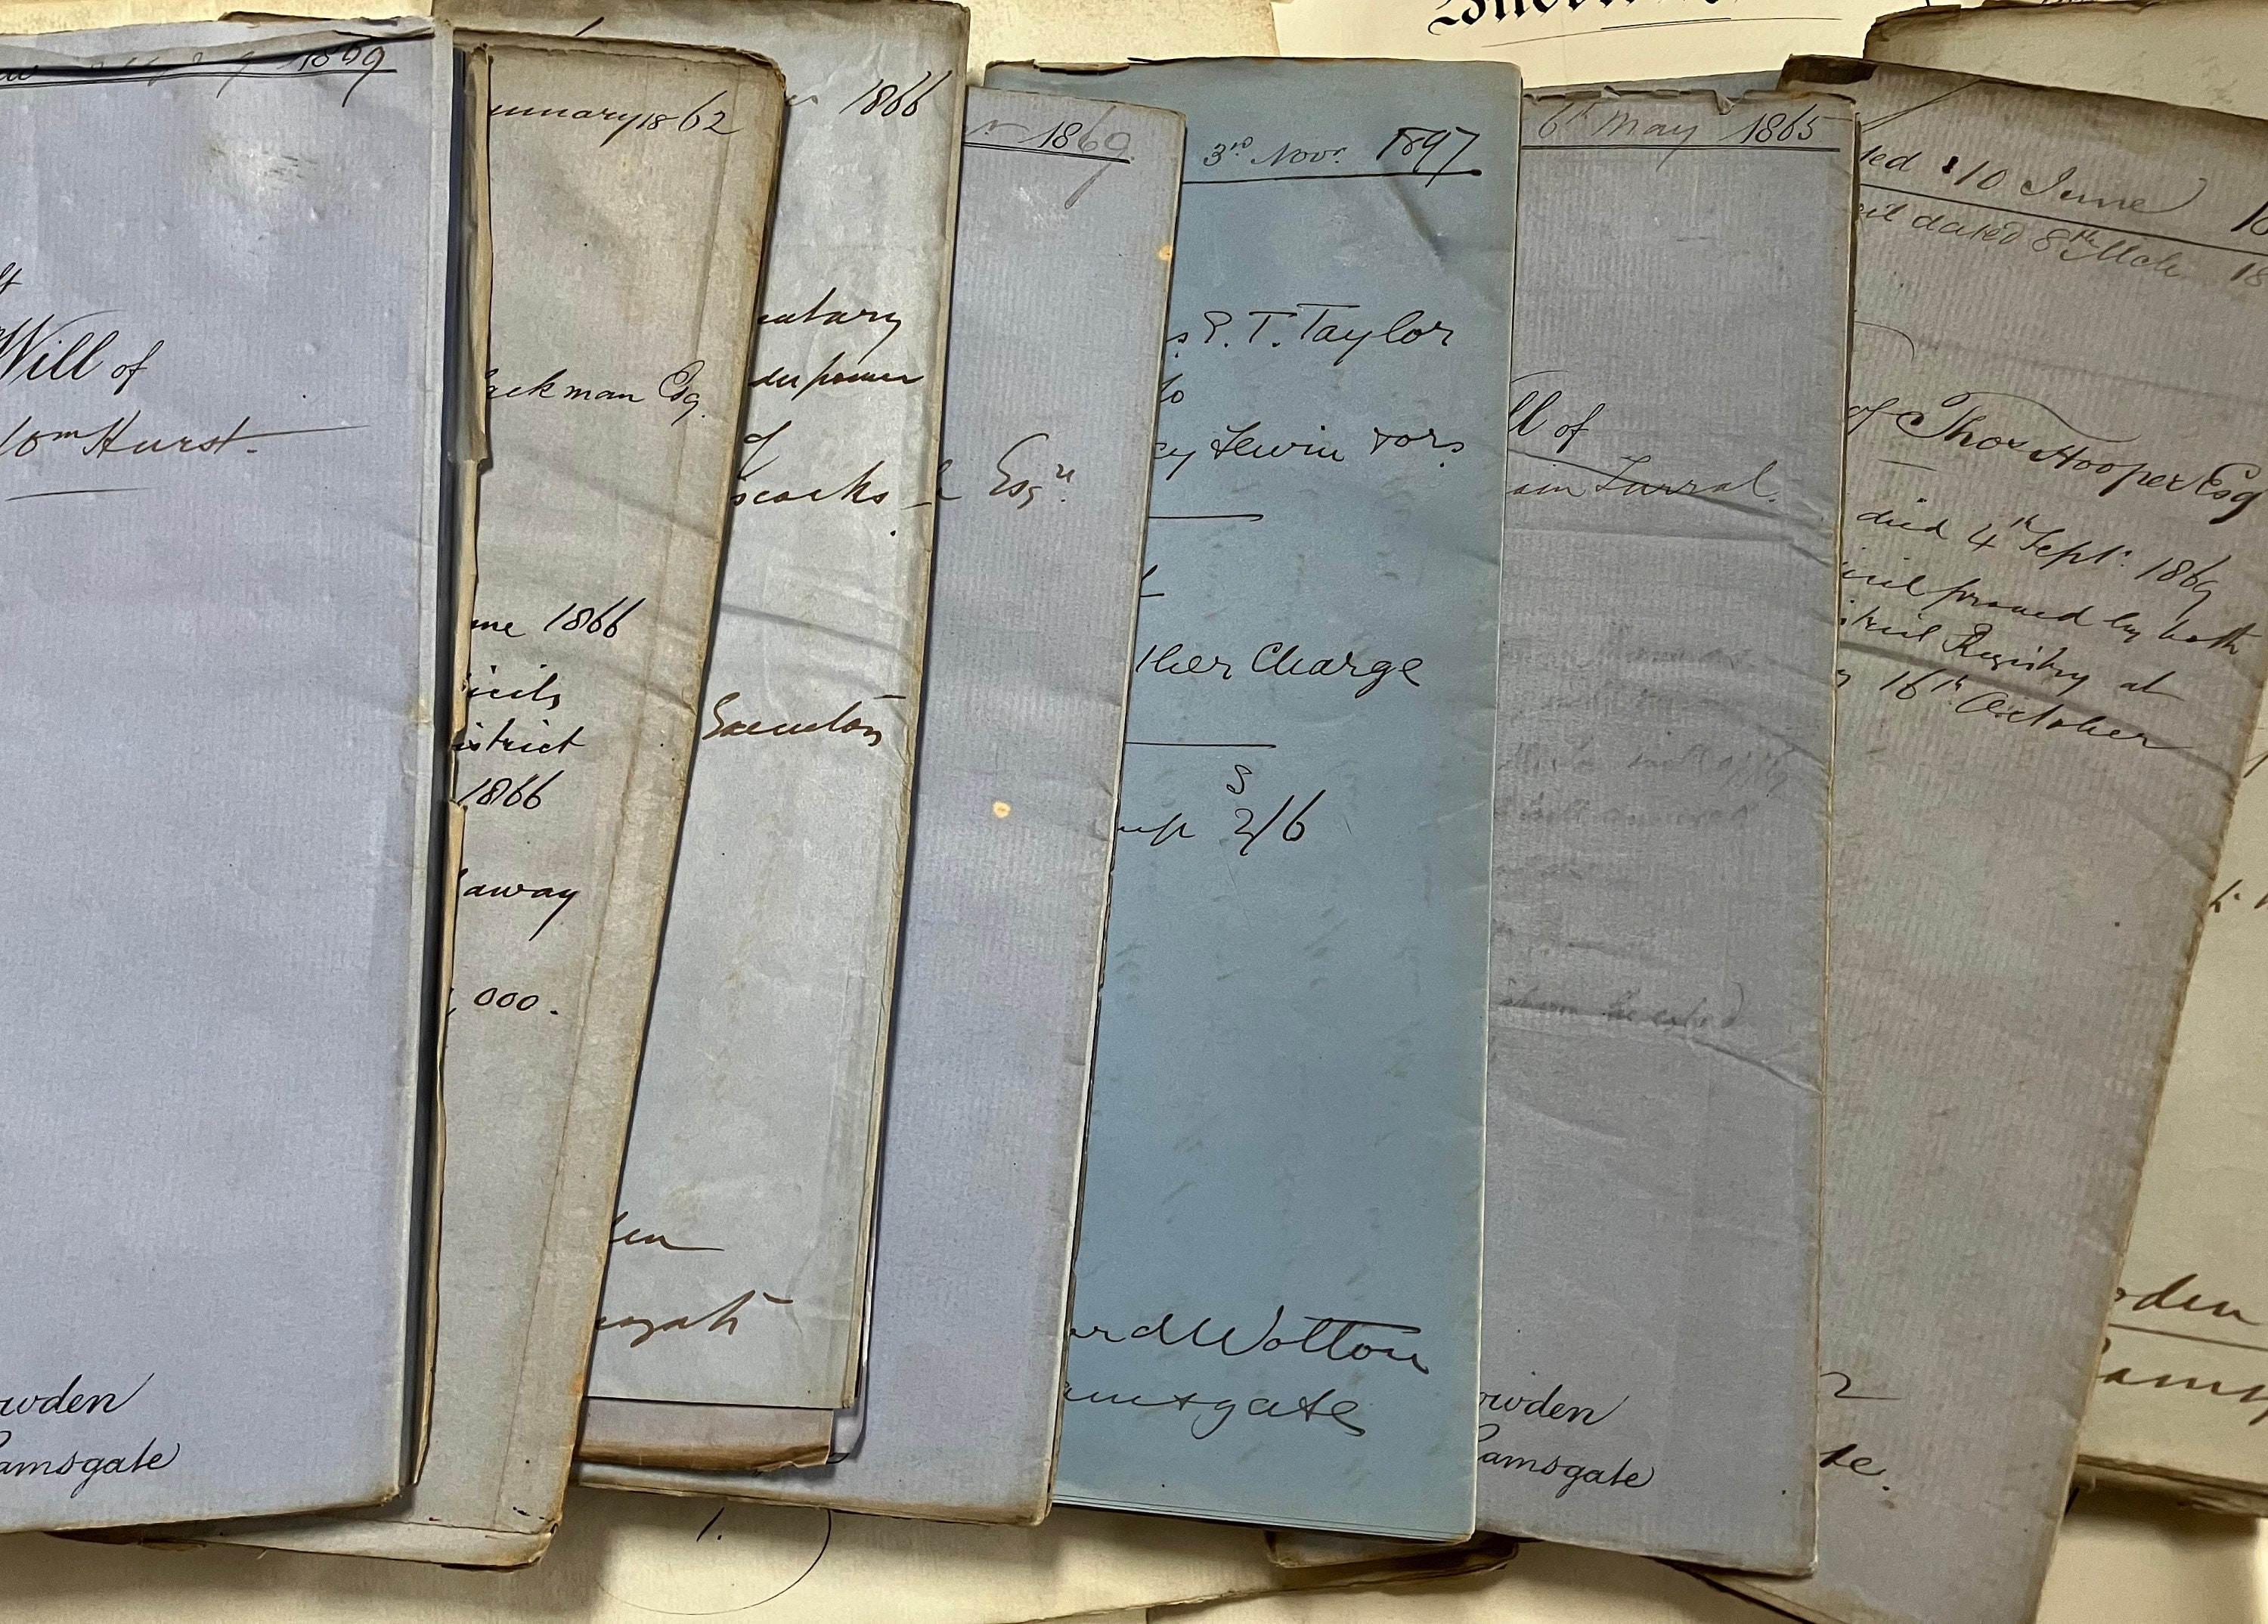 1869
Will of
Wm Hurst.
owden
amsgate
anuary 1862
ckman Esq.
une 1866
icils
istrict
1866
away
,000.
1866
entary
der power
of
scocks
Executors
den
1869
Esqre
3rd Novr. 1897
s E. T. Taylor
to
cy Lewin & ors
ther Charge
S
2/6
ard Wotton
amsgate
6th May 1865
ll of
iam Turral.
owden
amsgate
ted 10 June 18
cil dated 8th Mch 18
of Thos Hooper Esq
died 4th Septr. 1869
proved by both
Registry at
16th October
te.
wden
Rams
1.